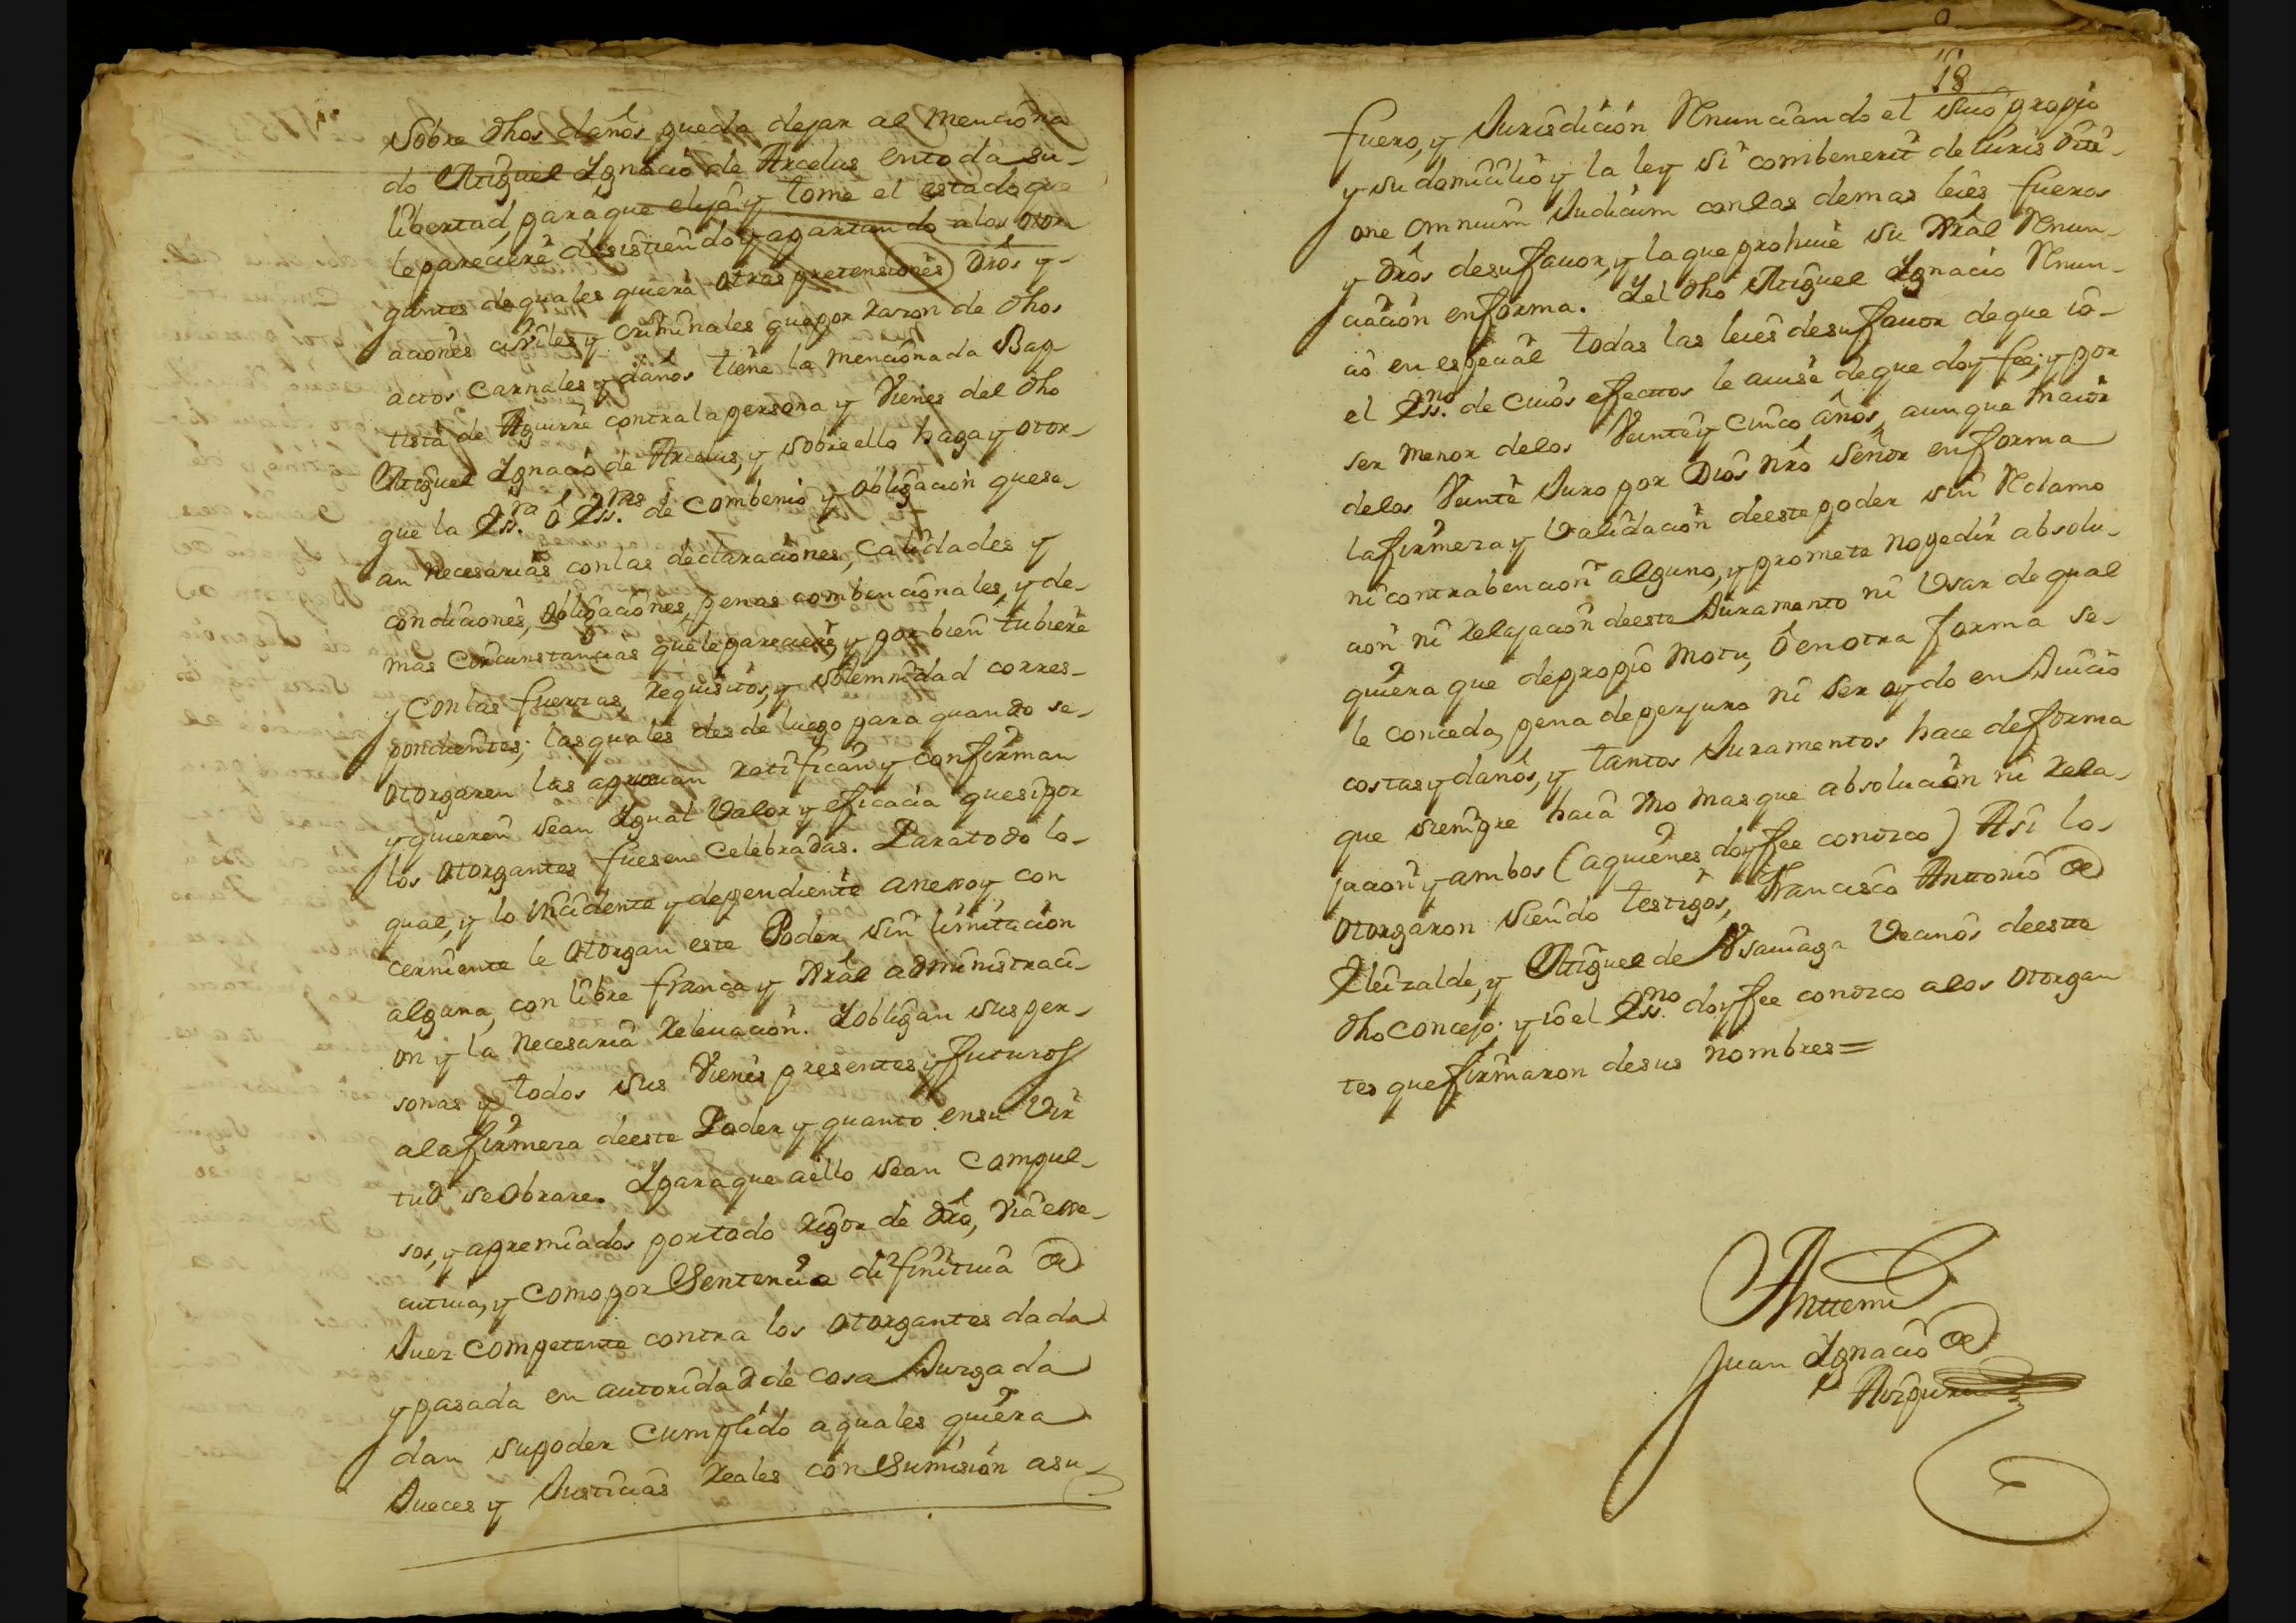 Sobre dhos daños pueda dejar al menciona
do Miguel Ignacio de Arcelus en toda su
libertad, para que elija y tome el estado que
le pareciere desistiendo y apartando a los otor
gantes de quales quiera otras pretensiones dros y
aciones civiles y criminales que por razon de dhos
actos carnales y daños tiene la mencionada Bap
tista de Aguirre contra la persona y vienes del dho
Miguel Ignacio de Arcelus, y sobre ello haga y otor
gue la Essra ó Essras de combenio y obligacion que se
an necesarias con las declaraciones, calidades y
condiciones, obligaciones, penas combencionales, y de
mas circunstancias que le pareciere, y por bien tubiere
y con las fuerzas, requisitos, y solemnidad corres
pondientes; las quales desde luego para quando se
otorgaren las aprueuan ratifican y confirman
y quieren sean Igual valor y eficacia que si por
los otorgantes fuesen celebradas. Para todo lo
qual, y lo incidente y dependiente anexo y con
cerniente le otorgan este Poder sin limitacion
alguna, con libre franca y Gral administraci
on y la necesaria releuacion. Y obligan sus per
sonas y todos sus vienes presentes y futuros
a la firmeza de este Poder y quanto en su vir
tud se obrare. Y para que a ello sean compul
sos, y apremiados por todo rigor de dro, via exe
cutiua, y como por Sentencia difinitiua de
Juez competente contra los otorgantes dada
y pasada en autoridad de cosa Juzgada
dan su poder cumplido a quales quiera
Jueces y Justicias reales con sumision a su
18
fuero, y Jurisdicion renunciando el suio propio
y su domicilio y la ley si combenerit de iuris diti
one omnium Judicum con las demas leies fueros
y dros de su fauor, y la que prohiue su Gral renun
ciacion en forma. Y el dho Miguel Ignacio renun
cio en especial todas las leies de su fauor de que io
el Essno. de cuios efectos le auise de que doy fee; y por
ser menor de los veinte y cinco años, aunque maior
de los veinte Juro por Dios nro señor en forma
la firmeza y validacion de este poder sin reclamo
ni contrabencion alguno, y promete no pedir absolu
cion ni relajacion de este Juramento ni usar de qual
quiera que de propio motu, ó en otra forma se
le conceda, pena de perjuro ni ser oydo en Juicio
costas y daños, y tantos Juramentos hace de forma
que siempre haia uno mas que absolucion ni rela
jacion y ambos (a quienes doy fee conozco) Asi lo
otorgaron siendo testigos, Francisco Antonio de
Eleizalde, y Miguel de Vsauiaga vecinos de este
dho concejo: y io el Essno doy fee conozco a los otorgan
tes que firmaron de sus nombres=
Antemi
Juan Ignacio de